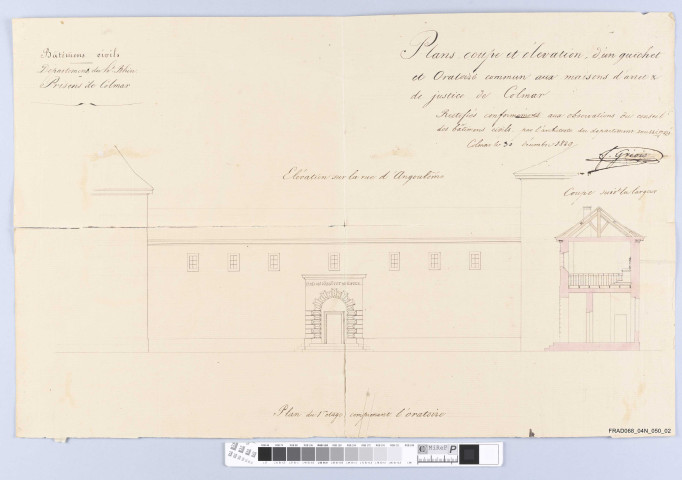 Bâtimens civils
Département du ht. Rhin
Prisons de Colmar
Plans coupe et élévation, d'un guichet
et Oratoire commun aux maisons d'arrêt &
de justice de Colmar
Rectifiés conformément aux observations du conseil
des bâtimens civils, par l'architecte du département
Colmar le 30 1820
Elévation sur la rue d'Angoulème
Coupe sur la largeur
Plan du 1er étage comprenant l'oratoire
FRAD068_04N_050_02